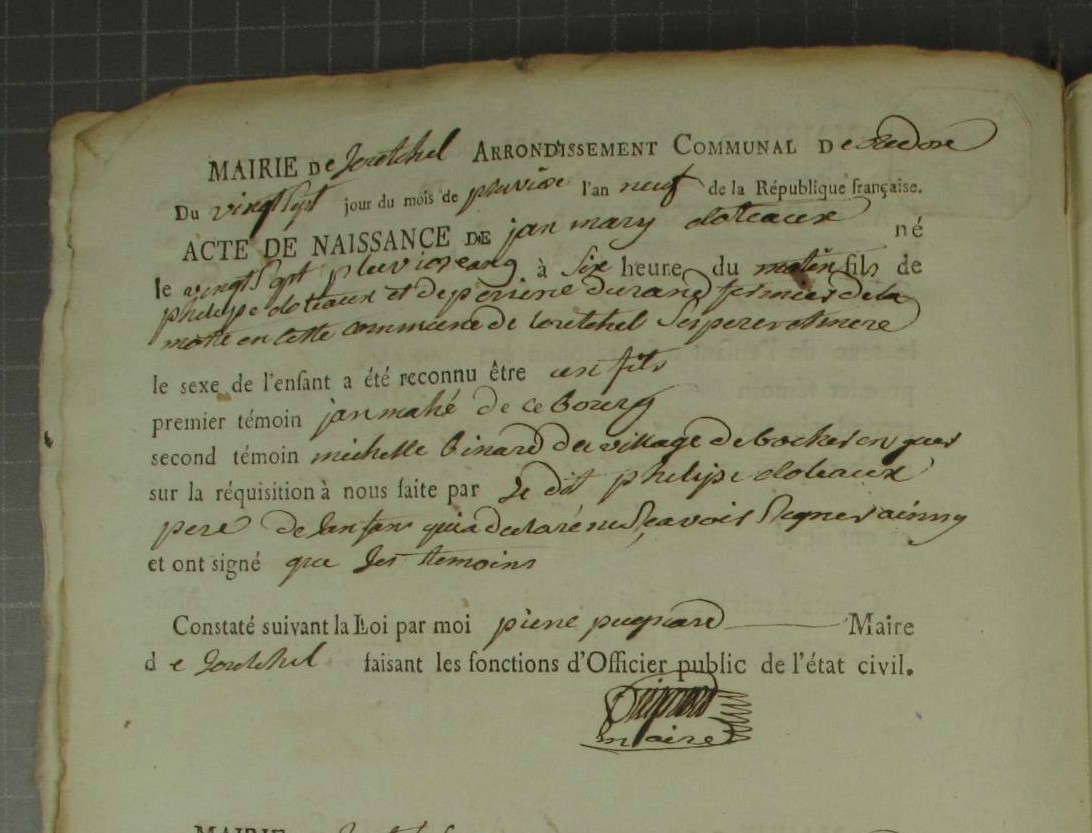 MAIRIE De Loretchel ARRONDISSEMENT COMMUNAL De Redon
Du vingt Sept jour du mois de pluviose l'an neuf de la République française.
ACTE DE NAISSANCE DE jan mary doteaux né
le vingt Sept pluviose an 9 à Six heure du matin fils de
philipe doteaux et de perrine durand fermier de la
motte en cette commune de loretchel Ses pere et mere
le sexe de l'enfant a été reconnu être un fils
premier témoin jan mahé de ce bourg
second témoin michelle binard du village de
sur la réquisition à nous faite par Le dit philipe doteaux
pere de lenfan qui a declaré ne Scavoir Signer ainsy
et ont signé que les temoins
Constaté suivant la Loi par moi piere Maire
d e Loretchel faisant les fonctions d'Officier public de l'état civil.
maire
MAIRIE